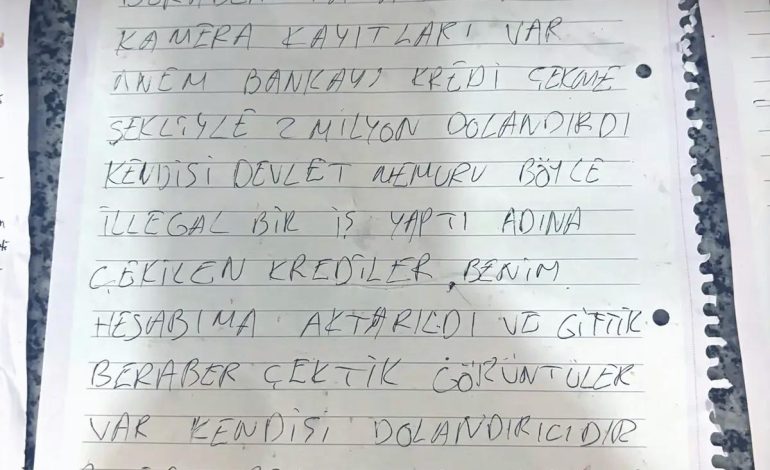 BERABER
KAMERA KAYITLARI VAR
ANEM BANKAYI KREDİ ÇEKME
ŞEKLİYLE 2 MİLYON DOLANDIRDI
KENDİSİ DEVLET MEMURU BÖYLE
İLLEGAL BİR İŞ YAPTI ADINA
ÇEKİLEN KREDİLER, BENİM
HESABIMA AKTARILDI VE GİTTİK
BERABER ÇEKTİK GÖRÜNTÜLER
VAR KENDİSİ DOLANDIRICIDIR